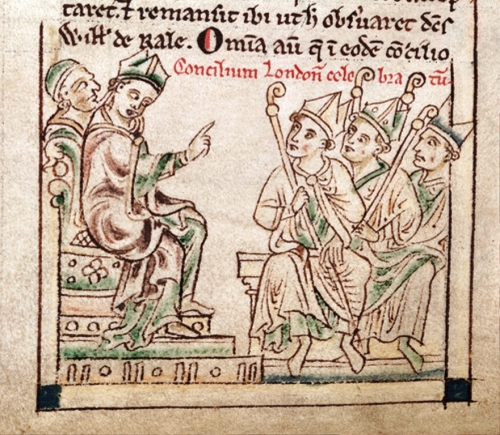 taret. ⁊ remansit ibi ut h̄ obs̄uaret dēs
Will̃ de Rale. Om̄ia aū q̄ ī eodē cōcilio
Concilium Londoñ celebratū.